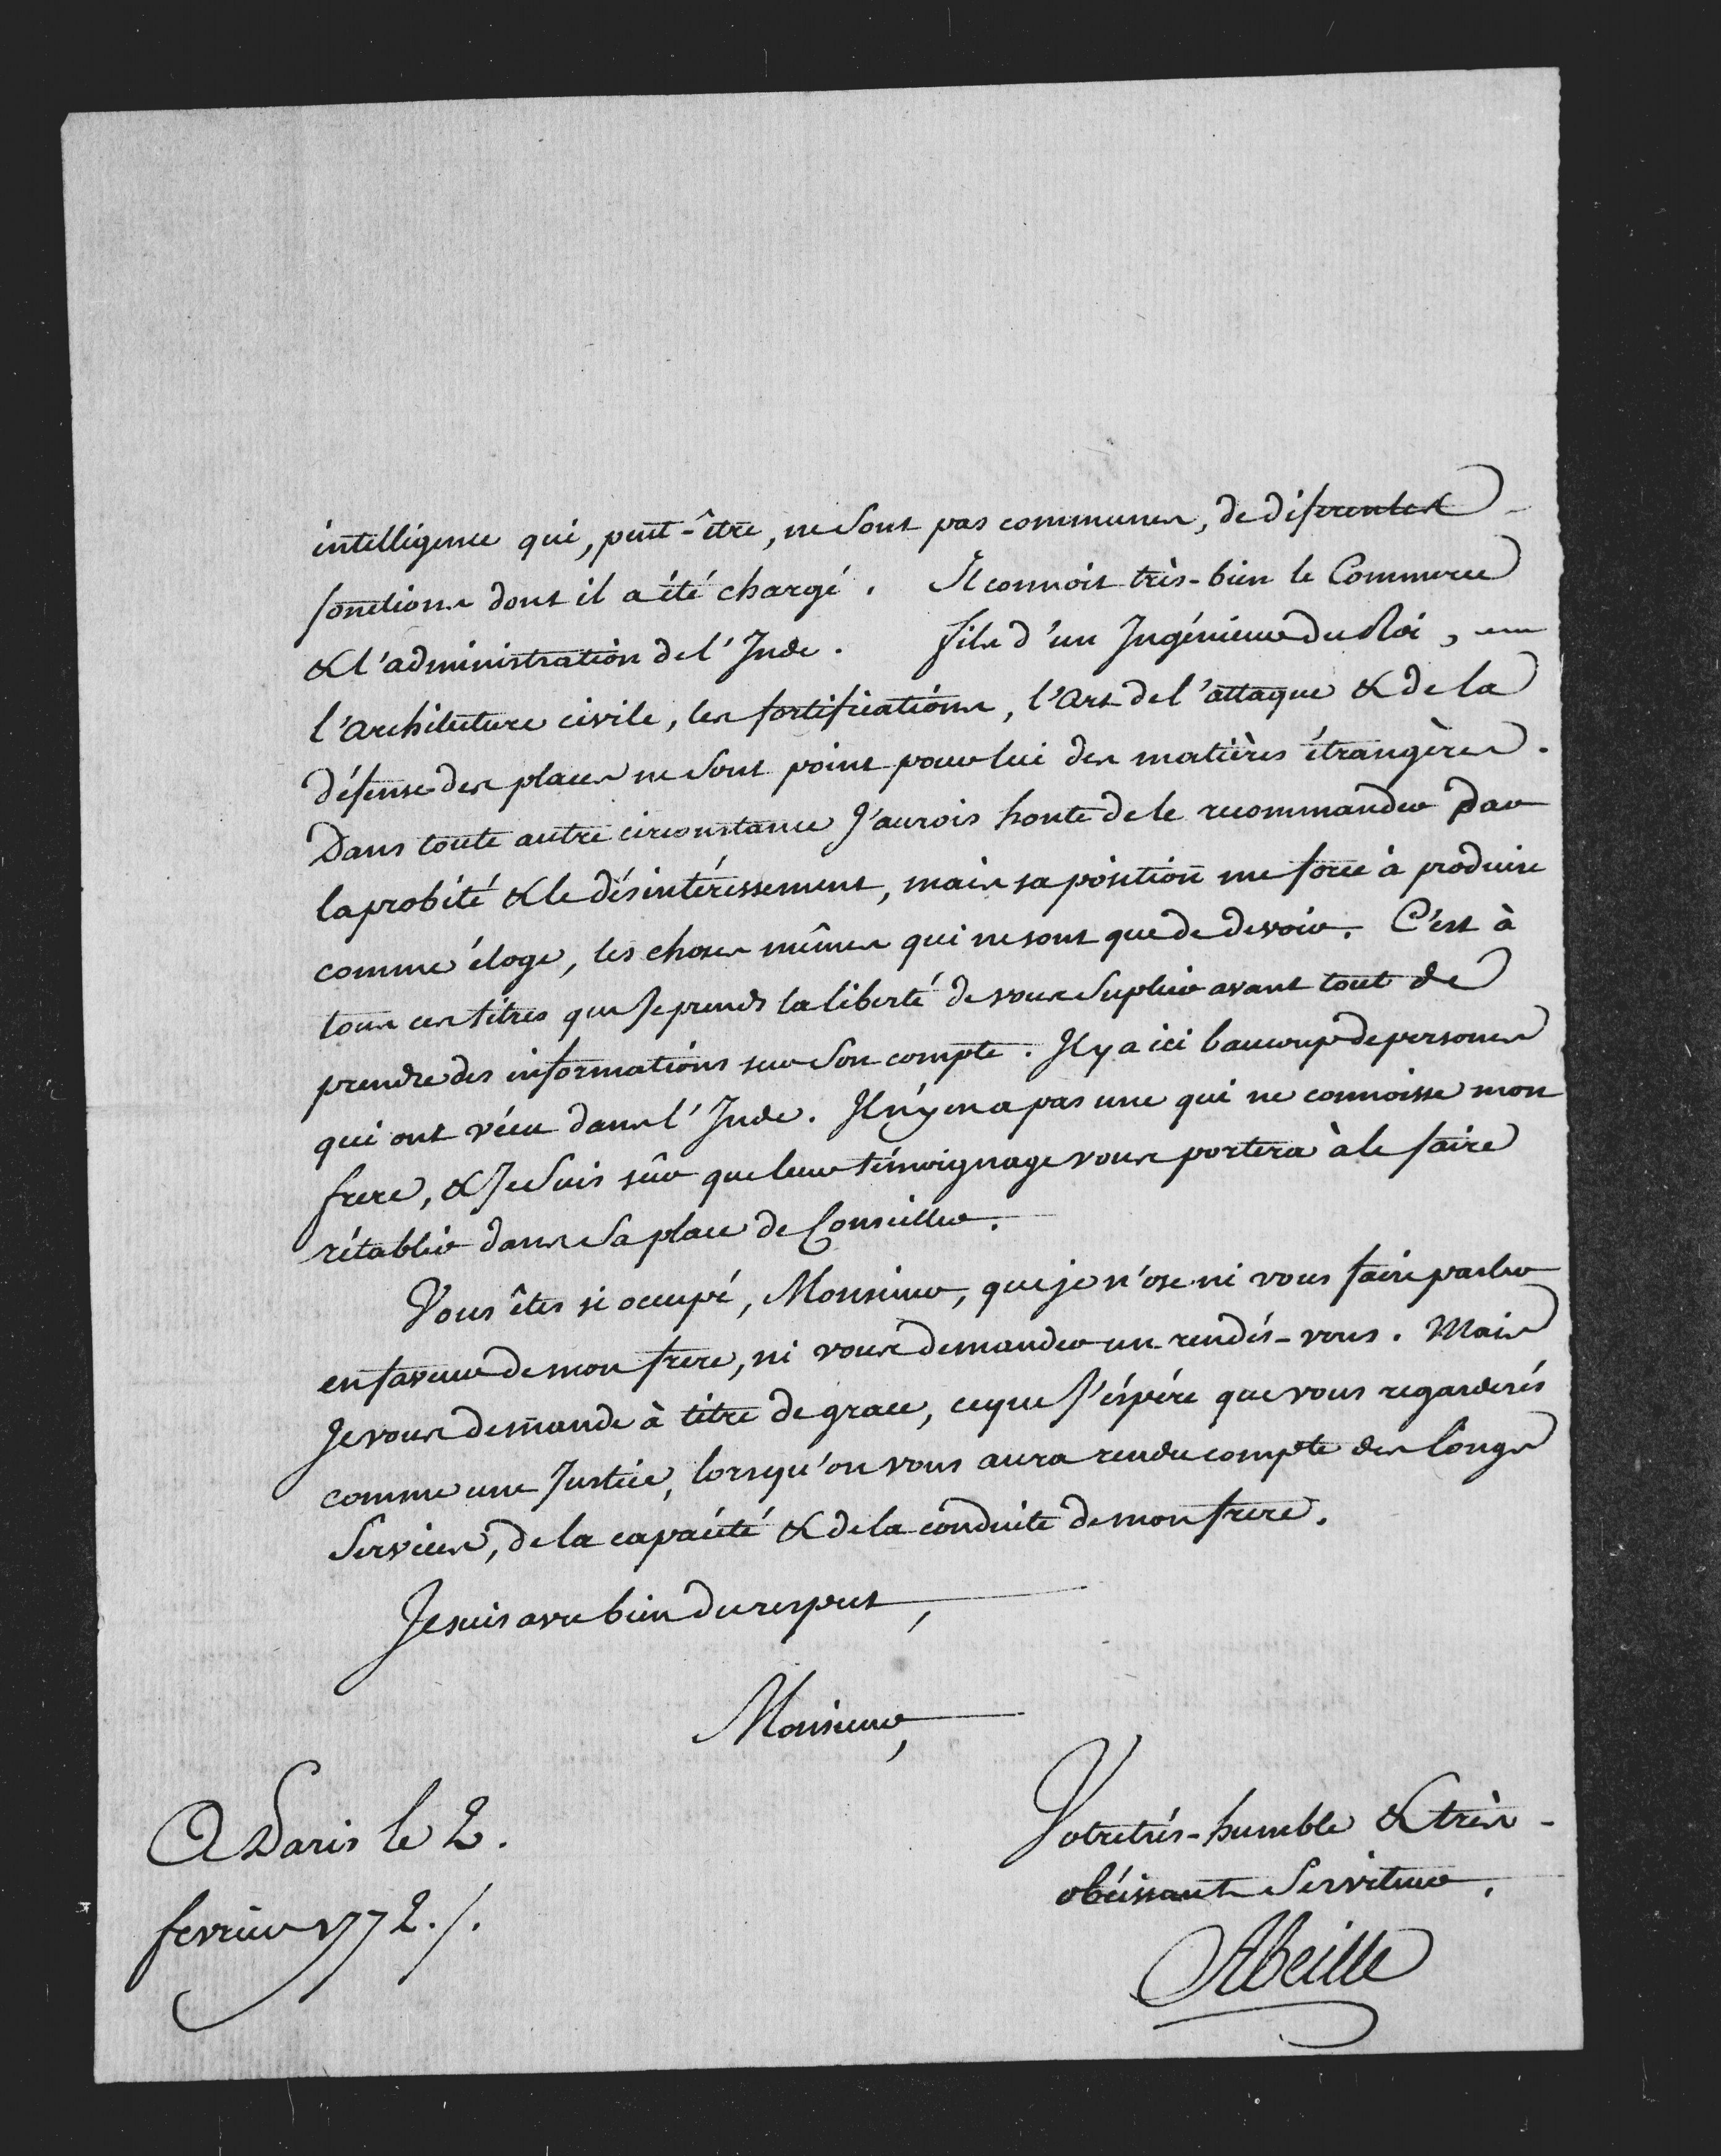 intelligence qui, peut-être, ne sont pas communes, de diferentes
fonctions dont il a été chargé. Il connoit très-bien le Commerce
& l'administration de l'Inde. fils d'un Ingénieur du Roi,
l'Architecture civile, les fortifications, l'Art de l'attaque & de la
défense des places ne sont point pour lui des matières étrangères.
Dans toute autre circonstance J'aurois honte de le recommander par
la probité & le désintéressement, mais sa position me force à produire
comme éloge, les choses mêmes qui ne sont que de devoir. C'est à
tous ces titres que Je prends la liberté de vous suplier avant tout de
prendre des informations sur son compte. Il y a ici beaucoup de persones
qui ont vécu dans l'Inde. Il n'y en a pas une qui ne connoisse mon
frere, & Je suis sûr que leur témoignage vous portera à le faire
rétablir dans sa place de Conseiller.
Vous êtes si occupé, Monsieur, que je n'ose ni vous faire parler
en faveur de mon frere, ni vous demander un rendés-vous. Mais
Je vous demande à titre de grace, ce que J'éspére que vous regarderés
comme une Justice, lorsqu'on vous aura rendu compte des longs
Services, de la capacité & de la conduite de mon frere.
Je suis avec bien du respect,
Monsieur,
Votre très-humble & très-
obéissant Serviteur,
Abeille
A Paris le 2.
fevrier 1772./.